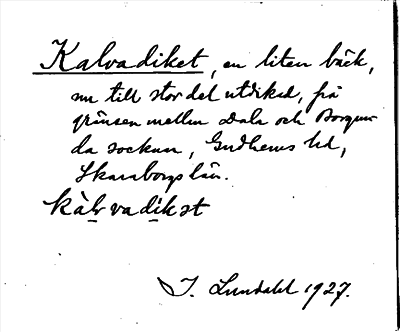 Kalvadiket, en liten bäck,
nu till stor del utdikad, på
gränsen mellan Dala och Borgun-
da socken, Gudhems hd,
Skaraborgs län.
kàlvadikət
I. Lundahl 1927.